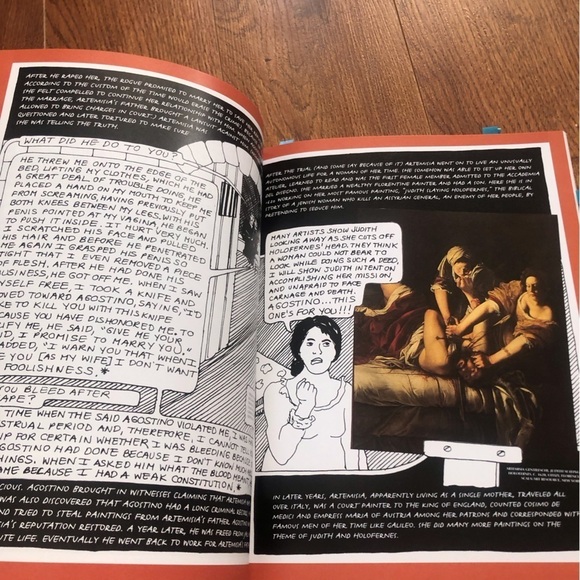 AFTER HE RAPED HER, THE ROGUE PROMISED TO MARRY HER TO SAVE
ACCORDING TO THE CUSTOM OF THE TIME WOULD ERASE THE CRIME.
(SHE FELT COMPELLED TO CONTINUE HER RELATIONSHIP WITH HIM.
THE MARRIAGE, ARTEMISIA'S FATHER BROUGHT A LAWSUIT
ALLOWED TO BRING CHARGES IN COURT.) ARTEMISIA WAS
QUESTIONED AND LATER TORTURED TO MAKE SURE
SHE WAS TELLING THE TRUTH.
WHAT DID HE DO TO YOU?
HE THREW ME ONTO THE EDGE OF THE
BED, LIFTING MY CLOTHES, WHICH HE HAD
A GREAT DEAL OF TROUBLE DOING, HE
PLACED A HAND ON MY MOUTH TO KEEP ME
FROM SCREAMING, HAVING PREVIOUSLY PUT
BOTH KNEES BETWEEN MY LEGS. WITH HIS
PENIS POINTED AT MY VAGINA, HE BEGAN
TO PUSH IT INSIDE. IT HURT VERY MUCH.
I SCRATCHED HIS FACE AND PULLED
HIS HAIR AND BEFORE HE PENETRATED
ME AGAIN I GRASPED HIS PENIS SO
TIGHT THAT I EVEN REMOVED A PIECE
OF FLESH. AFTER HE HAD DONE HIS
BUSINESS, HE GOT OFF ME. WHEN I SAW
MYSELF FREE, I TOOK A KNIFE AND
MOVED TOWARD AGOSTINO, SAYING, "I'D
LIKE TO KILL YOU WITH THIS KNIFE
BECAUSE YOU HAVE DISHONORED ME. TO
ME, HE SAID, "GIVE ME YOUR
I PROMISE TO MARRY YOU."
ADDED, "I WARN YOU THAT WHEN
YOU [AS MY WIFE] I DON'T WANT
FOOLISHNESS.*
YOU BLEED AFTER
RAPE?
TIME WHEN THE SAID AGOSTINO VIOLATED ME, I
PERIOD AND, THEREFORE, I CANNOT TELL
FOR CERTAIN WHETHER I WAS BLEEDING
WHEN DONE BECAUSE I DON'T KNOW
THINGS. WHEN I ASKED HIM WHAT THE BLOOD MEANT
BECAUSE I HAD A WEAK CONSTITUTION.
AGOSTINO BROUGHT IN WITNESSES CLAIMING THAT
WAS ALSO DISCOVERED THAT AGOSTINO HAD A LONG CRIMINAL
AND TRIED TO STEAL PAINTINGS FROM ARTEMISIA'S FATHER.
REPUTATION RESTORED. A YEAR LATER, HE WAS FREED FROM
LIFE. EVENTUALLY HE WENT BACK TO WORK FOR ARTEMISIA'S
AFTER THE TRIAL (AND SOME SAY BECAUSE OF IT) ARTEMISIA WENT ON TO LIVE AN UNUSUALLY
AUTONOMOUS LIFE FOR A WOMAN OF HER TIME. SHE SOMEHOW WAS ABLE TO SET UP HER OWN
ATELIER, LEARNED TO READ AND WAS THE FIRST FEMALE MEMBER ADMITTED TO THE ACCADEMIA
DEL DISEGNO. SHE MARRIED A WEALTHY FLORENTINE PAINTER AND HAD A SON. HERE SHE IS IN
WORKING ON HER MOST FAMOUS PAINTING, "JUDITH SLAYING HOLOFERNES," THE BIBLICAL
STORY OF A JEWISH WOMAN WHO KILLS AN ASSYRIAN GENERAL, AN ENEMY OF HER PEOPLE, BY
PRETENDING TO SEDUCE HIM.
MANY ARTISTS SHOW JUDITH
LOOKING AWAY AS SHE CUTS OFF
HOLOFERNES' HEAD. THEY THINK
A WOMAN COULD NOT BEAR TO
LOOK WHILE DOING SUCH A DEED.
I WILL SHOW JUDITH INTENT ON
ACCOMPLISHING HER MISSION,
AND UNAFRAID TO FACE
CARNAGE AND DEATH.
AGOSTINO...THIS
ONE'S FOR YOU!!!
IN LATER YEARS, ARTEMISIA, APPARENTLY LIVING AS A SINGLE MOTHER, TRAVELED ALL
OVER ITALY, WAS A COURT PAINTER TO THE KING OF ENGLAND, COUNTED COSIMO DE
MEDICI AND EMPRESS MARIA OF AUSTRIA AMONG HER PATRONS AND CORRESPONDED WITH
FAMOUS MEN OF HER TIME LIKE GALILEO. SHE DID MANY MORE PAINTINGS ON THE
THEME OF JUDITH AND HOLOFERNES.